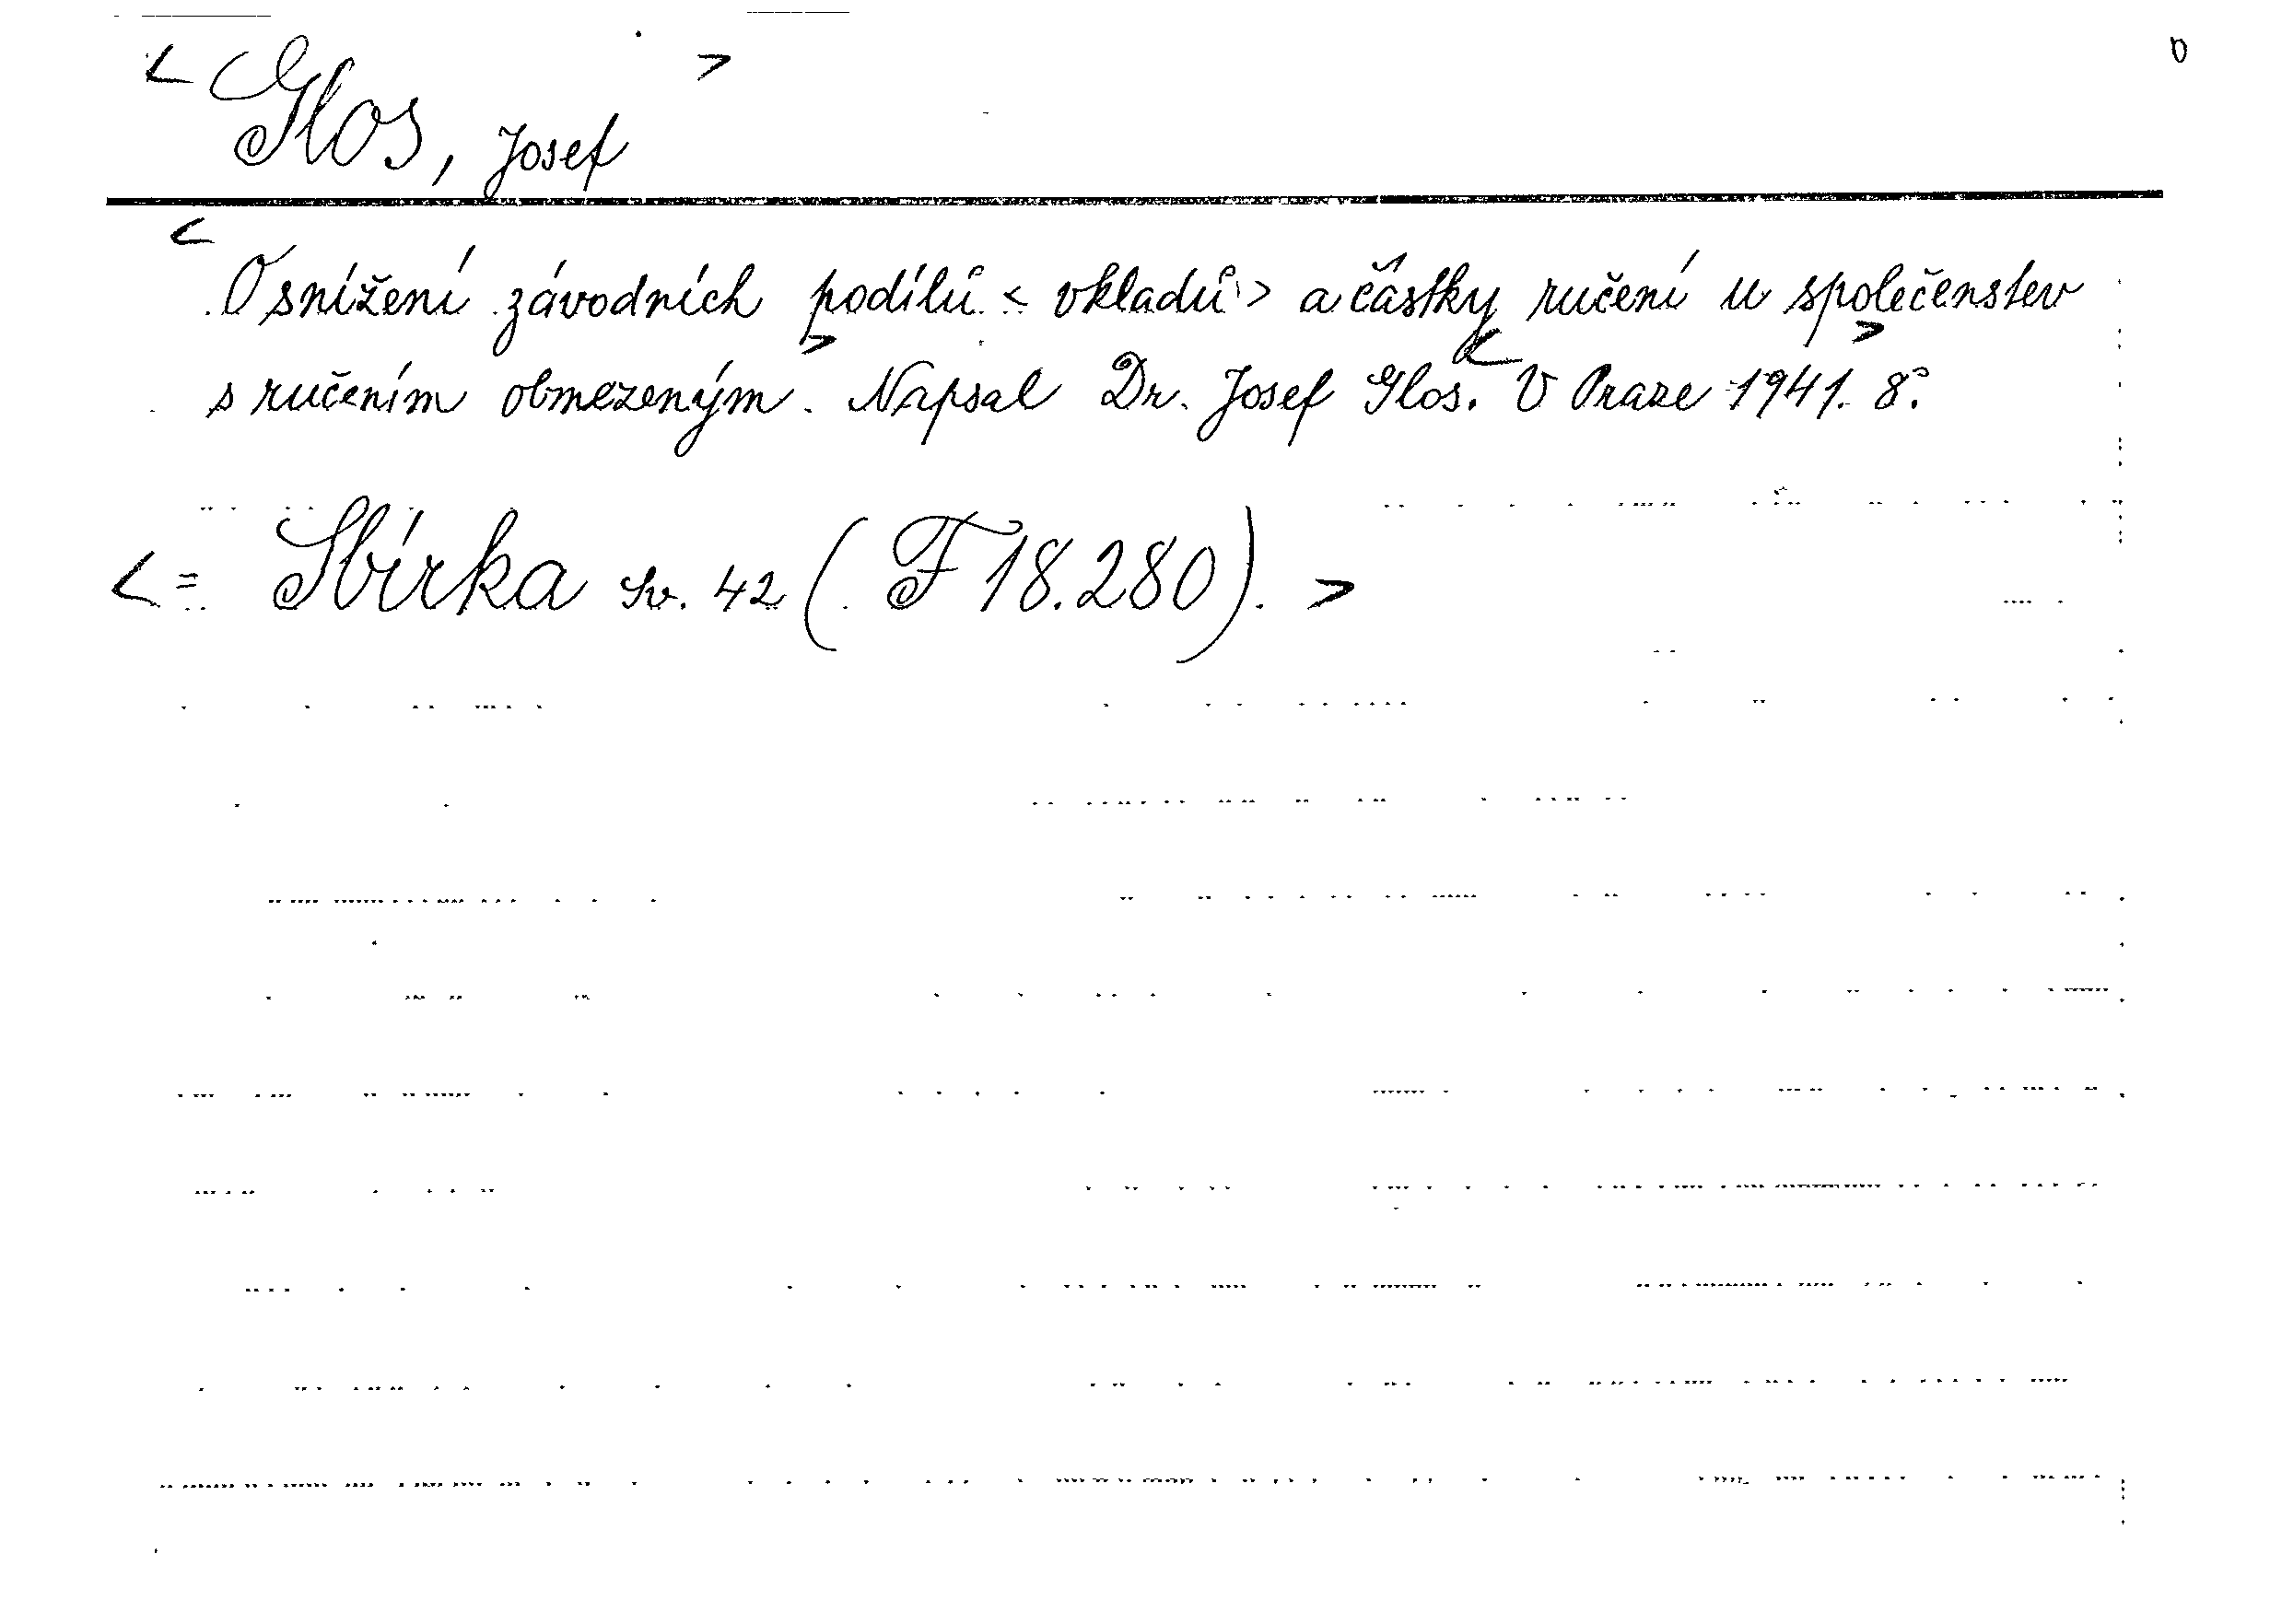 < Glos, Josef >
< O snížení závodních podílů < vkladů > a částky ručení u společenstev
s ručením obmezeným. > Napsal Dr. Josef Glos. < V Praze 1941. > 8°.
< = Sbírka sv. 42 (F 18.280). >